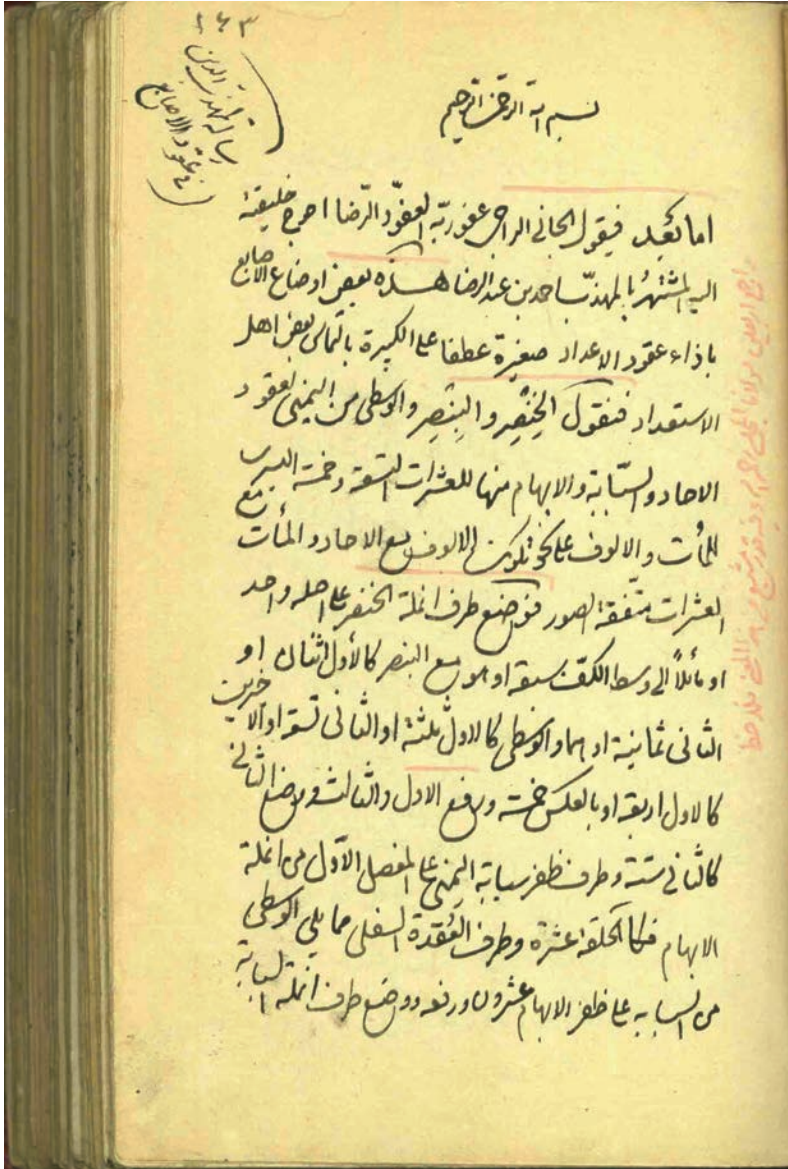 ١٤٣
رسالة مهذب الدين
في عقود الاصابع
بسم الله الرحمن الرحيم
اما بعد فيقول الجاني الراجي عفو ربه العفو والرضا احوج خليقته
اليه المشتهر بالمهذب احمد بن عبد الرضا هذه بعض اوضاع الاصابع
بازاء عقود الاعداد صغيرة عطفا على الكبيرة بالتماس بعض اهل
الاستعداد فنقول الخِنْصِر والبِنْصِر والوسطى من اليمنى لعقود
الاحاد والسبّابة والابهام منها للعشرات التسعة وخمسة اليسرى
للمأت والالوف على نحو تكون الالوف مع الاحاد والمأت مع
العشرات متّفقة الصور فوضع طرف انملة الخنصر على اصله واحد
او مائلاً الى وسط الكفّ سبعة او هو مع البنصر كالأول اثنان او
الثانى ثمانية او هما والوسطى كالاول ثلثة او الثانى تسعة او الاخيرين
كالاول اربعة او بالعكس خمسة ورفع الاول والثالث ووضع الثانى
كالثانى ستة وطرف ظفر سبابة اليمنى على المفصل الاول من انملة
الابهام كالحلقة عشرة وطرف العُقدة السفلى مما يلي الوسطى
من السبابه على ظفر الابهام عشرون ورفعه ووضع طرف انملة السبابة